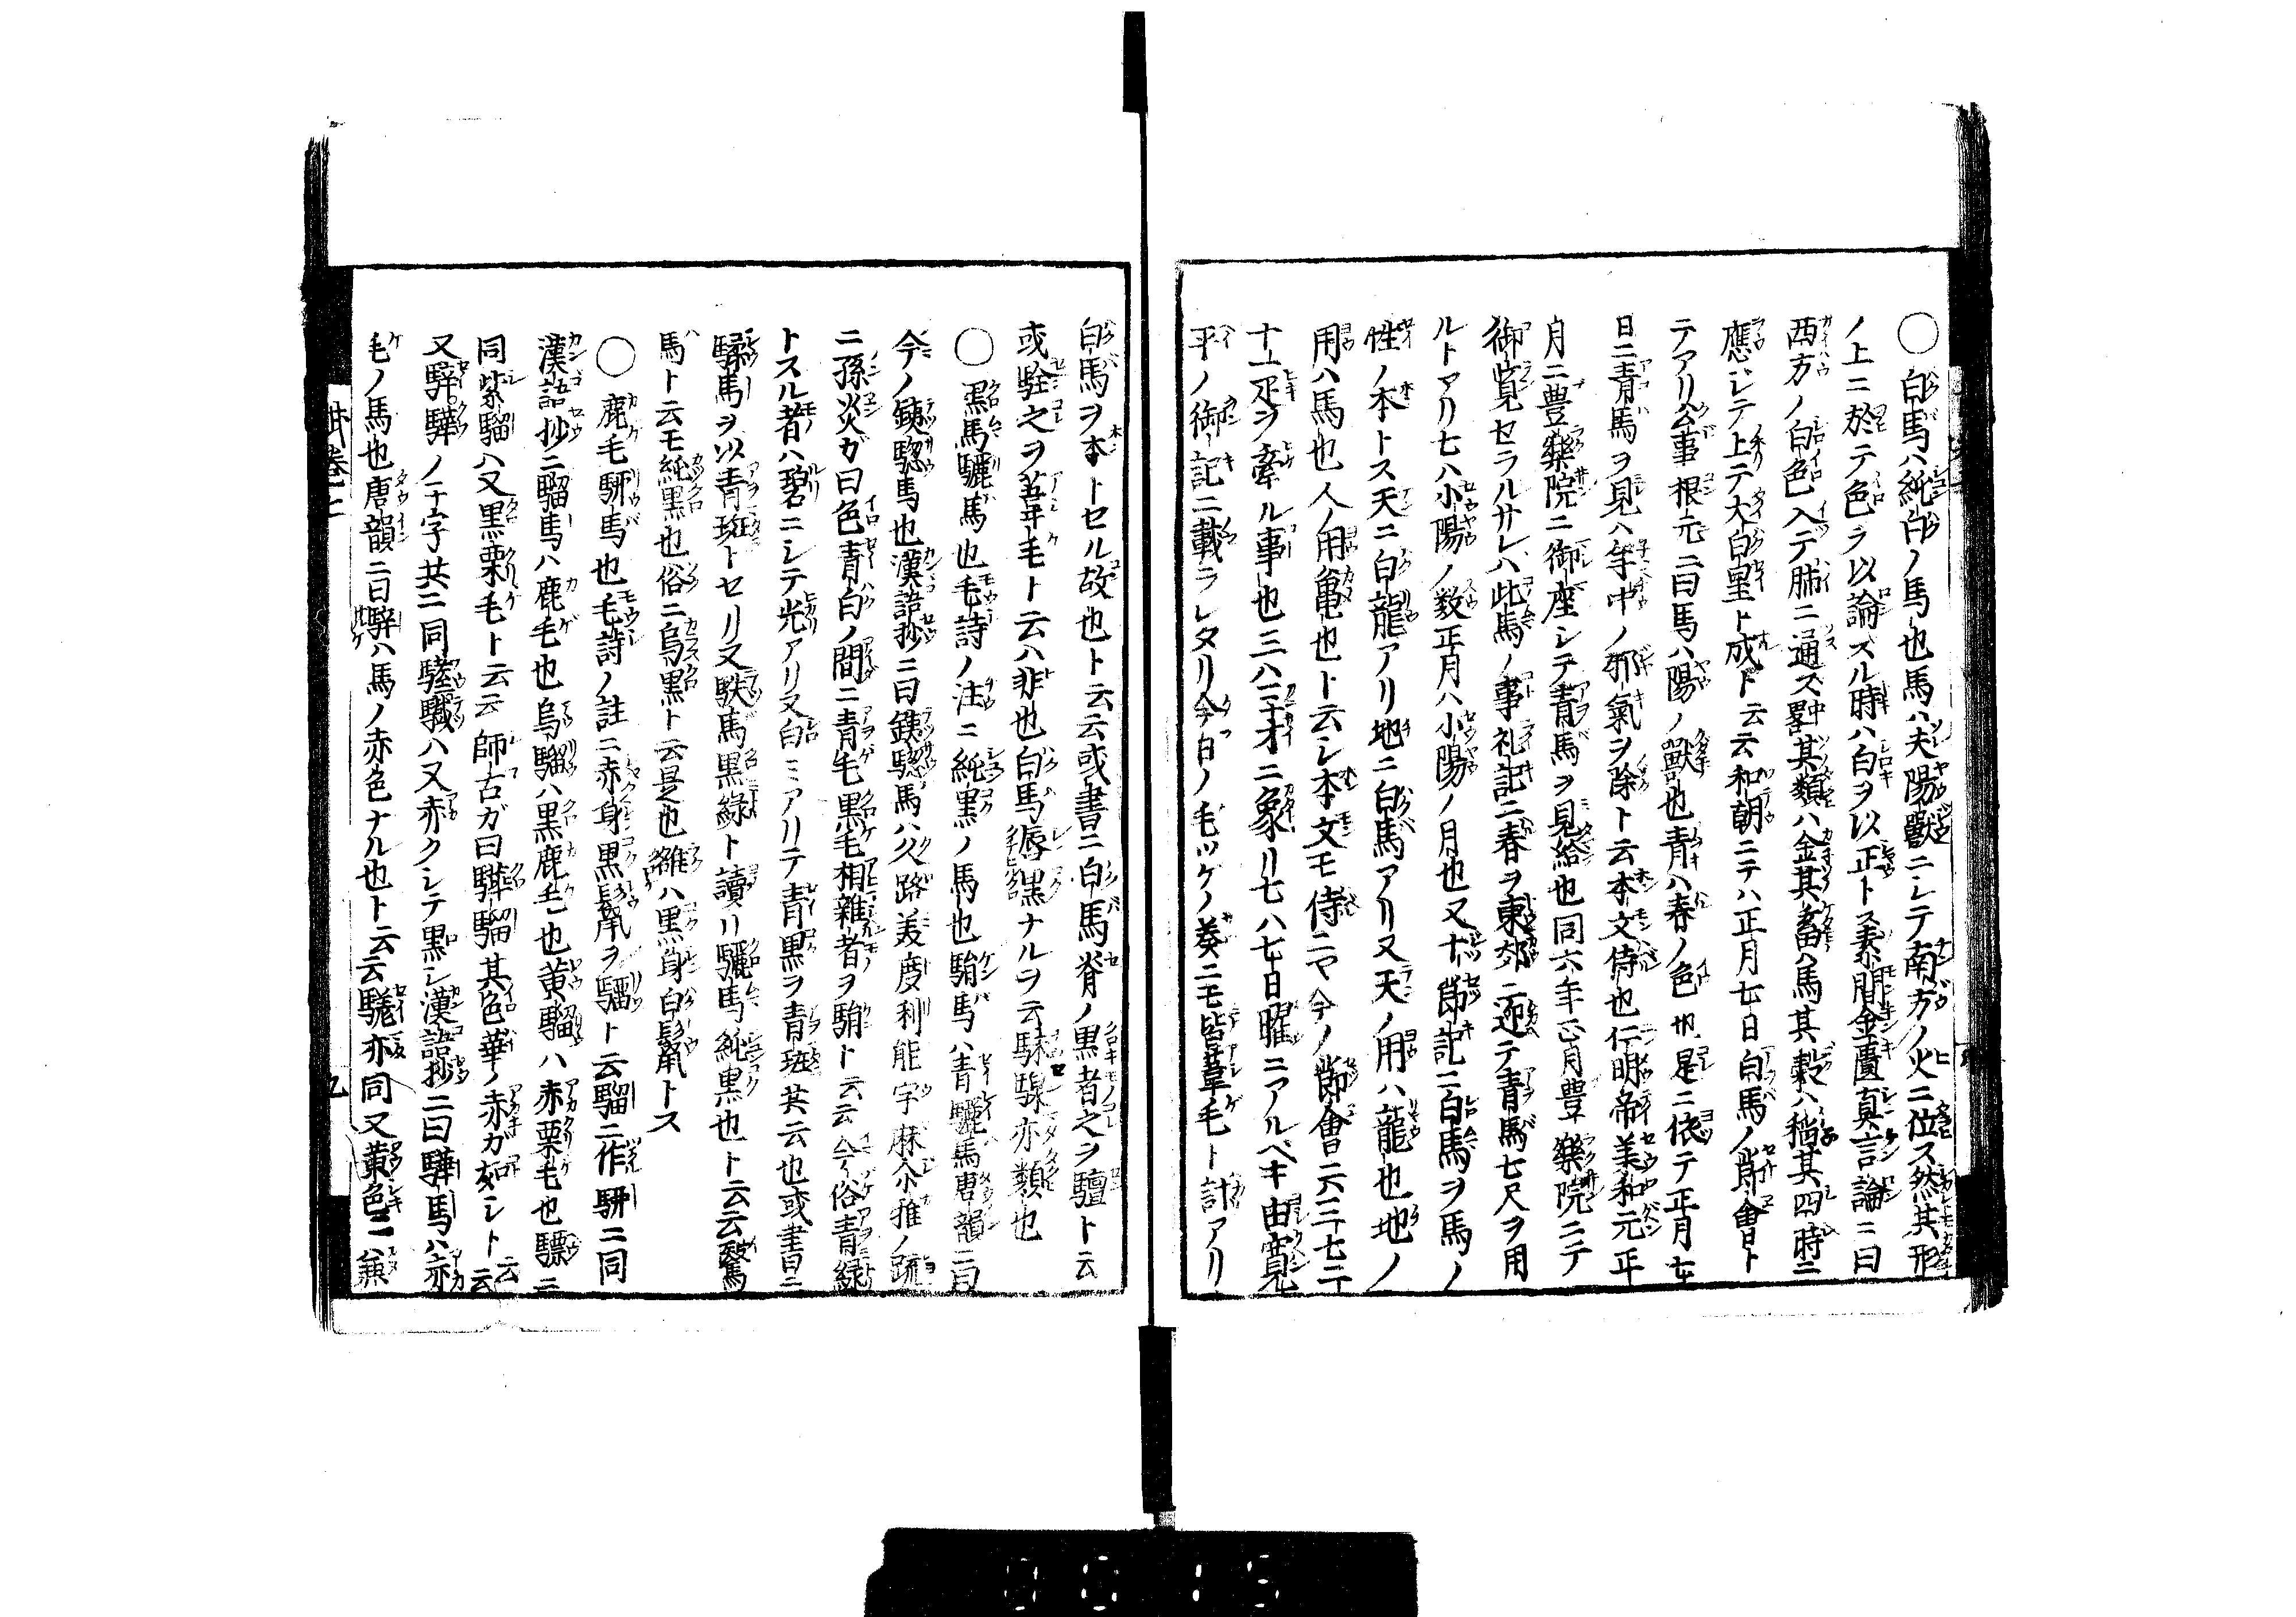 〇白馬ハ純白ノ馬也馬ハ夫陽獸ニシテ南方ノ火ニ位ス然其形
ノ上ニ於テ色ヲ以論スル時ハ白ヲ以正トス素問金匱真言論ニ曰
西方ノ白色入テ肺ニ通ズ畧中其類ハ金其畜ハ馬其穀ハ稲其四時ニ
應シテ上テ大白星ト成ト云云和朝ニテハ正月七日白馬ノ節會ト
テアリ公事根元ニ曰馬ハ陽ノ獸也青ハ春ノ色也是ニ依テ正月七
日ニ青馬ヲ見ハ年中ノ邪氣ヲ除ト云本文侍也仁明帝美和元年正
月ニ豊樂院ニ御座シテ青馬ヲ見給也同六年正月豊樂院ニテ
御覧セラルサレハ此馬ノ事礼記ニ春ヲ東郊ニ迎テ青馬七疋ヲ用
ルトアリ七ハ小陽ノ数正月ハ小陽ノ月也又十節記ニ白馬ヲ馬ノ
性ノ本トス天ニ白龍アリ地ニ白馬アリ又天ノ用ハ龍也地ノ
用ハ馬也人ノ用亀也ト云シ本文モ侍ニヤ今ノ節會ニ六三十七二十
十一疋ヲ牽ル事也三八三才ニ象リ七ハ七日曜ニアルベキ由寛
平ノ御記ニ載ラレタリ今日ノ毛ツケノ奏ニモ皆葦毛ト計アリ
白馬ヲ本トセル故也ト云云或書ニ白馬脊ノ黒者之ヲ驙ト云
或駩之ヲ葦毛ト云ハ非也白馬唇黒ナルヲ云駩騡亦類也
〇黒馬驪馬也毛詩ノ注ニ純黒ノ馬也駽馬ハ青驪馬唐韻ニ曰
今ノ鐵驄馬也漢語抄ニ曰鐵驄馬ハ久路美度利能宇麻尓雅ノ疏
ニ孫炎ガ曰色青白ノ間ニ青毛黒毛相雜者ヲ駽ト云云今俗青緑
トスル者ハ碧ニシテ光アリ又白ミアリテ青黒ヲ青斑共云也或書ニ
驈馬ヲ以青斑トセリ又駚馬黒緑ト讀リ驪馬純黒也ト云云騖
馬ト云モ純黒也俗ニ烏黒ト云是也雒ハ黒身白鬣トス
〇鹿毛騂馬也毛詩ノ註ニ赤身黒鬣ヲ騮ト云騮ニ作騂ニ同
漢語抄ニ騮馬ハ鹿毛也烏騮ハ黒鹿毛也黄騮ハ赤栗毛也驃ニ
同紫騮ハ又黒栗毛ト云云師古ガ曰驊騮其色華ノ赤カ如シト云云
又騂驊ノ二十字共ニ同騜驖ハ又赤クシテ黒シ漢語抄ニ曰驊馬ハ赤
毛ノ馬也唐韻ニ曰騂ハ馬ノ赤色ナル也ト云云驍亦同又黄色ニ兼